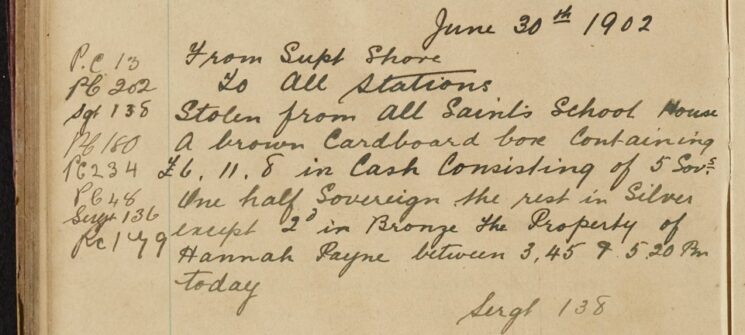 June 30th 1902
P.C 13
From Supt Shore
PC 202
To All Stations
Sgt 138
Stolen from All Saints School House
PC 180
A brown Cardboard box Containing
PC 234
£6, 11, 8 in Cash Consisting of 5 Sovs.
PC 48
One half Sovereign the rest in Silver
Sergt 136
except 2d in Bronze The Property of
PC 179
Hannah Payne between 3,45 & 5.20 Pm
today
Sergt 138